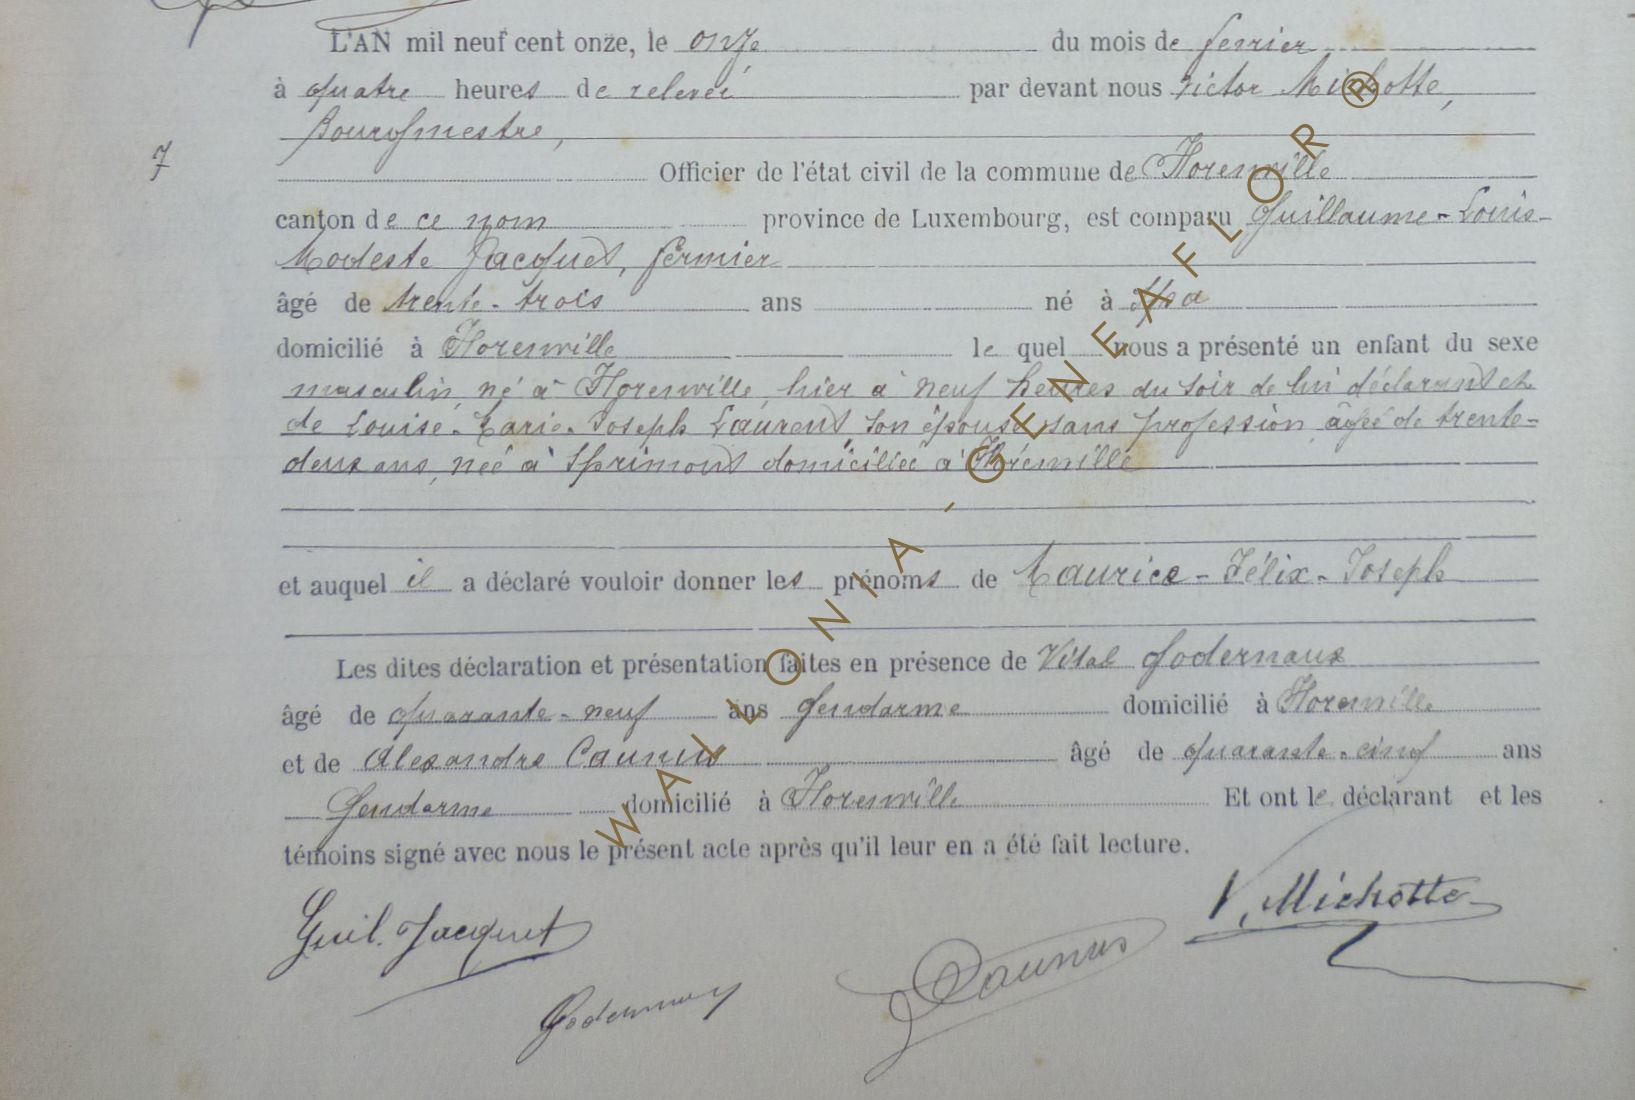 L'AN mil neuf cent onze, le onze du mois de fevrier
à quatre heures de relevée par devant nous Victor Michotte,
Bourgmestre,
7
Officier de l'état civil de la commune de Florenville
canton de ce nom province de Luxembourg, est comparu Guillaume-Louis-
Modeste Jacquet, fermier
âgé de trente-trois ans né à Spa
domicilié à Florenville lequel nous a présenté un enfant du sexe
masculin, né à Florenville, hier à neuf heures du soir de lui déclarant et
de Louise-Marie-Joseph Laurent son épouse sans profession, âgée de trente-
deux ans, née à Sprimont domiciliée à Florenville
et auquel il a déclaré vouloir donner les prénoms de Maurice-Félix-Joseph
Les dites déclaration et présentation faites en présence de Vital Godernaux
âgé de quarante-neuf ans Gendarme domicilié à Florenville
et de Alexandre Caunus âgé de quarante-cinq ans
Gendarme domicilié à Florenville Et ont le déclarant et les
témoins signé avec nous le présent acte après qu'il leur en a été fait lecture.
Guil. Jacquet
V. Michotte
Caunus
Godernaux
WALLONIA-GENEAFLOR®